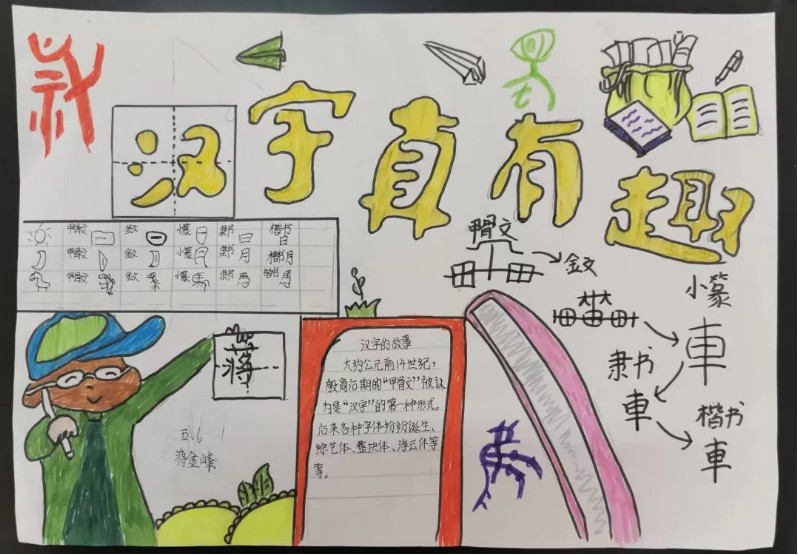 汉字真有趣
甲骨文 金文 小篆 隶书 日 楷书 日
甲骨文 金文 小篆 隶书 月 楷书 月
甲骨文 金文 小篆 隶书 馬 楷书 馬
甲骨文
金文
小篆
車
隶书
車
楷书
車
蒋
汉字的故事
大约公元前14世纪,
殷商后期的“甲骨文”被认
为是“汉字”的第一种形式。
后来各种字体纷纷诞生、
综艺体、整块体、浮云体等
等。
五.6
蒋金峰